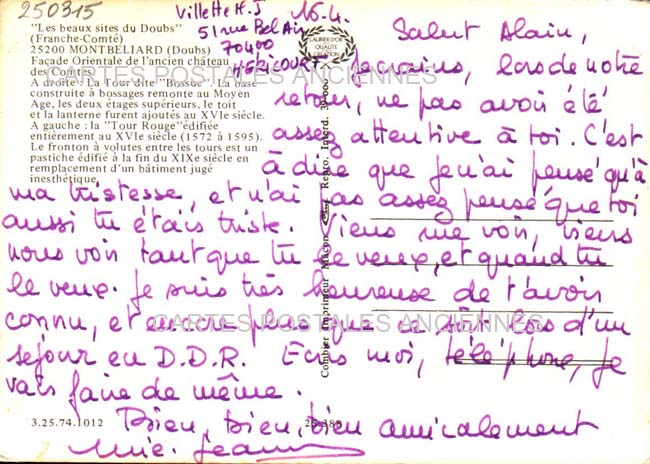 250315
Villette M. J
16.4.
51 rue Bel Air
70400
HERICOURT
"Les beaux sites du Doubs"
(Franche-Comté)
25200 MONTBELIARD (Doubs)
Façade Orientale de l'ancien château
des Comtes
A droite : La Tour dite "Bossue". La base
construite à bossages remonte au Moyen
Age, les deux étages supérieurs, le toit
et la lanterne furent ajoutés au XVIe siècle.
A gauche : la "Tour Rouge" édifiée
entièrement au XVIe siècle (1572 à 1595).
Le fronton à volutes entre les tours est un
pastiche édifié à la fin du XIXe siècle en
remplacement d'un bâtiment jugé
inesthétique.
LAURIER D'OR
QUALITE
CREATION
CARTES POSTALES ANCIENNES
Salut Alain,
Je crains, lors de notre
retour, ne pas avoir été
assez attentive à toi. C'est
à dire que je n'ai pensé qu'à
ma tristesse, et n'ai pas assez pensé que toi
aussi tu étais triste. Viens me voir, viens
nous voir tant que tu le veux, et quand tu
le veux. Je suis très heureuse de t'avoir
connu, et encore plus que ce soit lors d'un
séjour en D.D.R. Ecris moi, téléphone, je
vais faire de même.
Bien, bien, bien amicalement
CARTES POSTALES ANCIENNES
Combier Imprimeur Macon
Repro. Interd.
3.25.74.1012